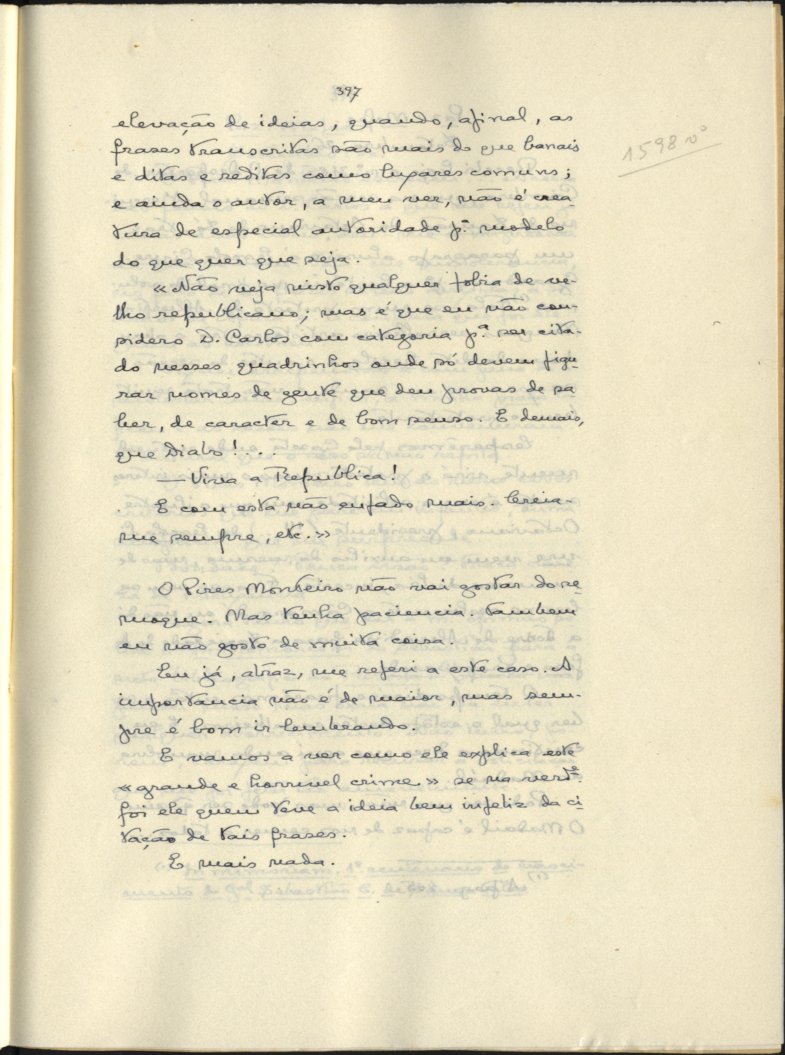 397
1598 vº
elevação de ideias, quando, afinal, as
frases transcritas são mais do que banais
e ditas e reditas como lugares comuns;
e ainda o autor, a meu ver, não é crea-
tura de especial autoridade pª modelo
do que quer que seja.
«Não veja nisto qualquer fobia de ve-
lho republicano; mas é que eu não con-
sidero D. Carlos com categoria pª ser cita-
do nesses quadrinhos onde só devem figu-
rar nomes de gente que deu provas de sa-
ber, de caracter e de bom senso. E demais,
que Diabo!...
— Viva a Republica!
E com esta não enfado mais. Creia-
me sempre, etc.»
O Pires Monteiro não vai gostar do re-
moque. Mas tenha paciencia. Tambem
eu não gosto de muita coisa.
Eu já, atraz, me referi a este caso. A
importancia não é de maior, mas sem-
pre é bom ir lembrando.
E vamos a ver como ele explica este
«grande e horrivel crime» se na verdᵉ
foi ele quem teve a ideia bem infeliz da ci-
tação de tais frases.
E mais nada.